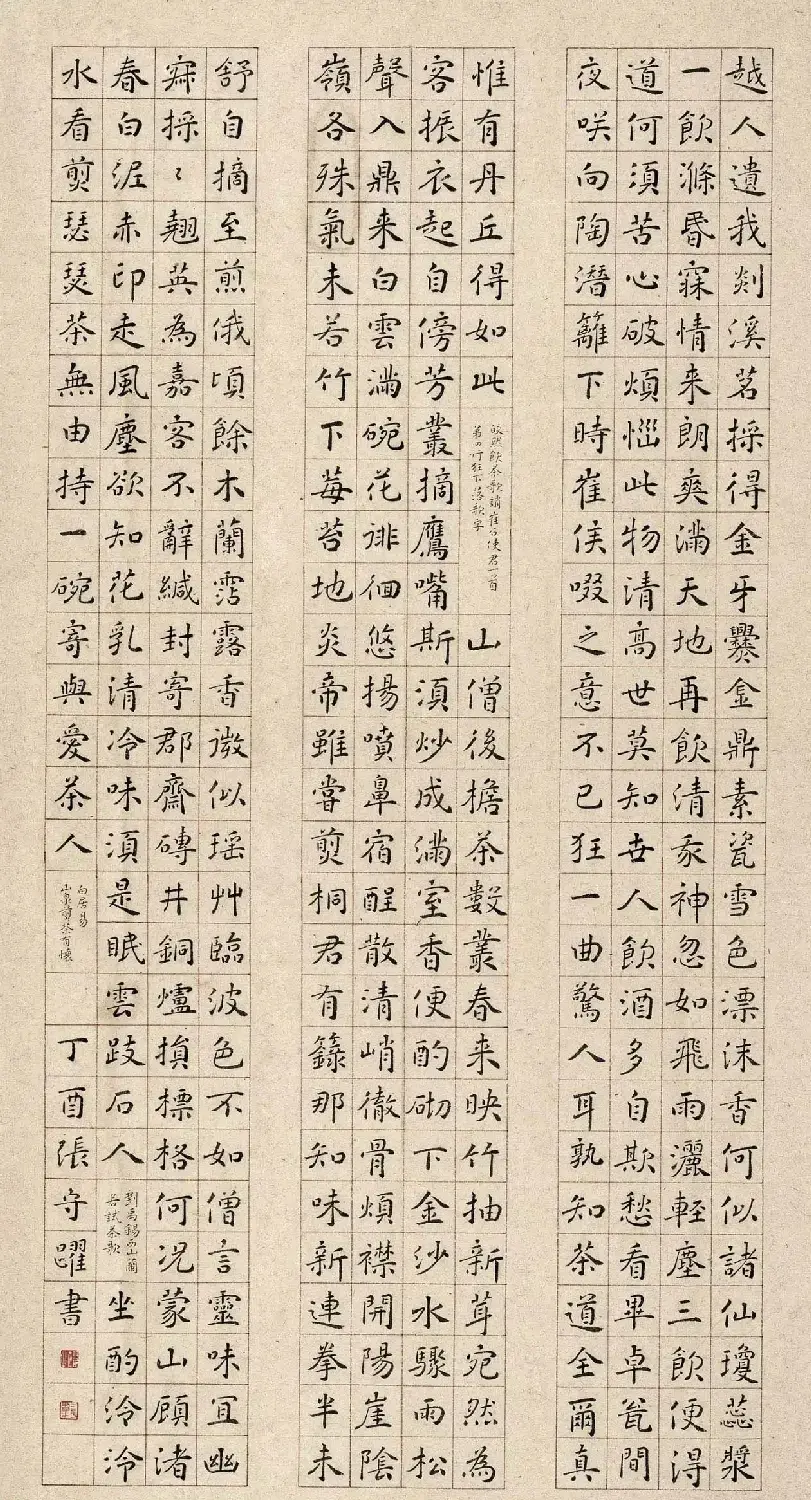 越人遺我剡溪茗採得金牙爨金鼎素瓷雪色漂沫香何似諸仙瓊蕊漿
一飲滌昬寐情来朗爽滿天地再飲清我神忽如飛雨灑輕塵三飲便得
道何須苦心破煩惱此物清高世莫知世人飲酒多自欺愁看畢卓瓮間
夜咲向陶潛籬下時崔侯啜之意不已狂一曲驚人耳孰知茶道全爾真
惟有丹丘得如此
皎然飲茶歌誚崔石使君一首
第四行狂下落歌字
山僧後檐茶數叢春来映竹抽新茸宛然為
客振衣起自傍芳叢摘鷹嘴斯須炒成滿室香便酌砌下金沙水驟雨松
聲入鼎来白雲滿碗花徘徊悠揚噴鼻宿酲散清峭徹骨煩襟開陽崖陰
嶺各殊氣未若竹下莓苔地炎帝雖嘗剪桐君有籙那知味新連拳半未
舒自摘至煎俄頃餘木蘭霑露香微似瑶艸臨波色不如僧言靈味宜幽
寂採〻翹英為嘉客不辭緘封寄郡齋磚井銅爐損標格何況蒙山顧渚
春白泥赤印走風塵欲知花乳清冷味須是眠雲跂石人
劉禹錫西山蘭
若試茶歌
坐酌泠泠
水看剪瑟瑟茶無由持一碗寄與愛茶人
白居易
山泉煎茶有懷
丁酉張守躍書